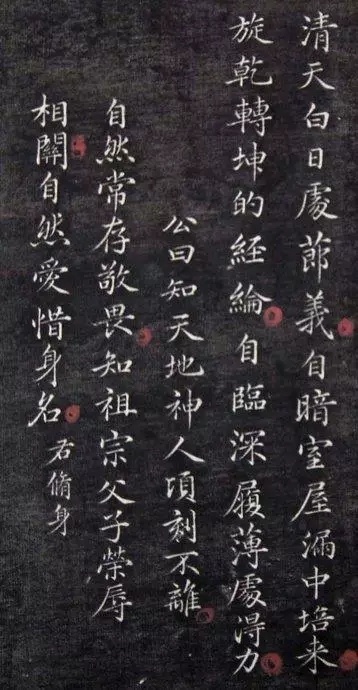 清天白日處莭義自暗室屋漏中培来
旋乾轉坤的經綸自臨深履薄處得力
公曰知天地神人頃刻不離
自然常存敬畏知祖宗父子榮辱
相關自然愛惜身名
右脩身